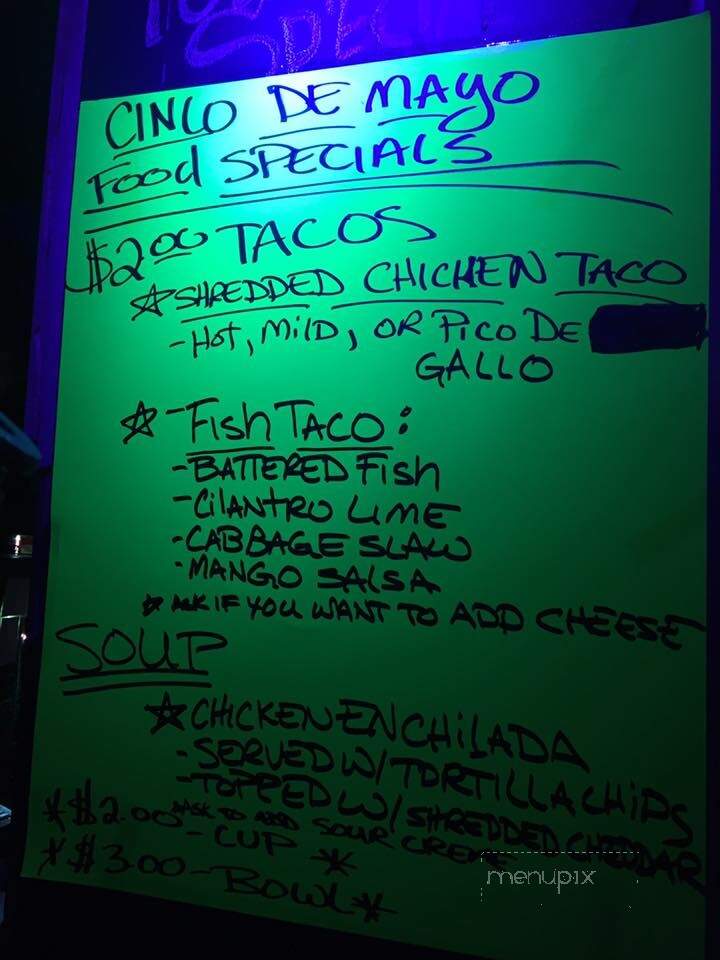 CINCO DE MAYO
Food SPECIALS
$2.00 TACOS
SHREDDED CHICKEN TACO
-Hot, MILD, OR PICO DE
GALLO
-FISH TACO:
-BATTERED FISH
-CILANTRO LIME
-CABBAGE SLAW
-MANGO SALSA
* ASK IF YOU WANT TO ADD CHEESE
SOUP
CHICKEN ENCHILADA
-SERVED W/ TORTILLA CHIPS
-TOPPED W/ SHREDDED CHEDDAR
*ASK TO ADD SOUR CREME
*$2.00 - CUP *
*$3.00 - BOWL*
menupix